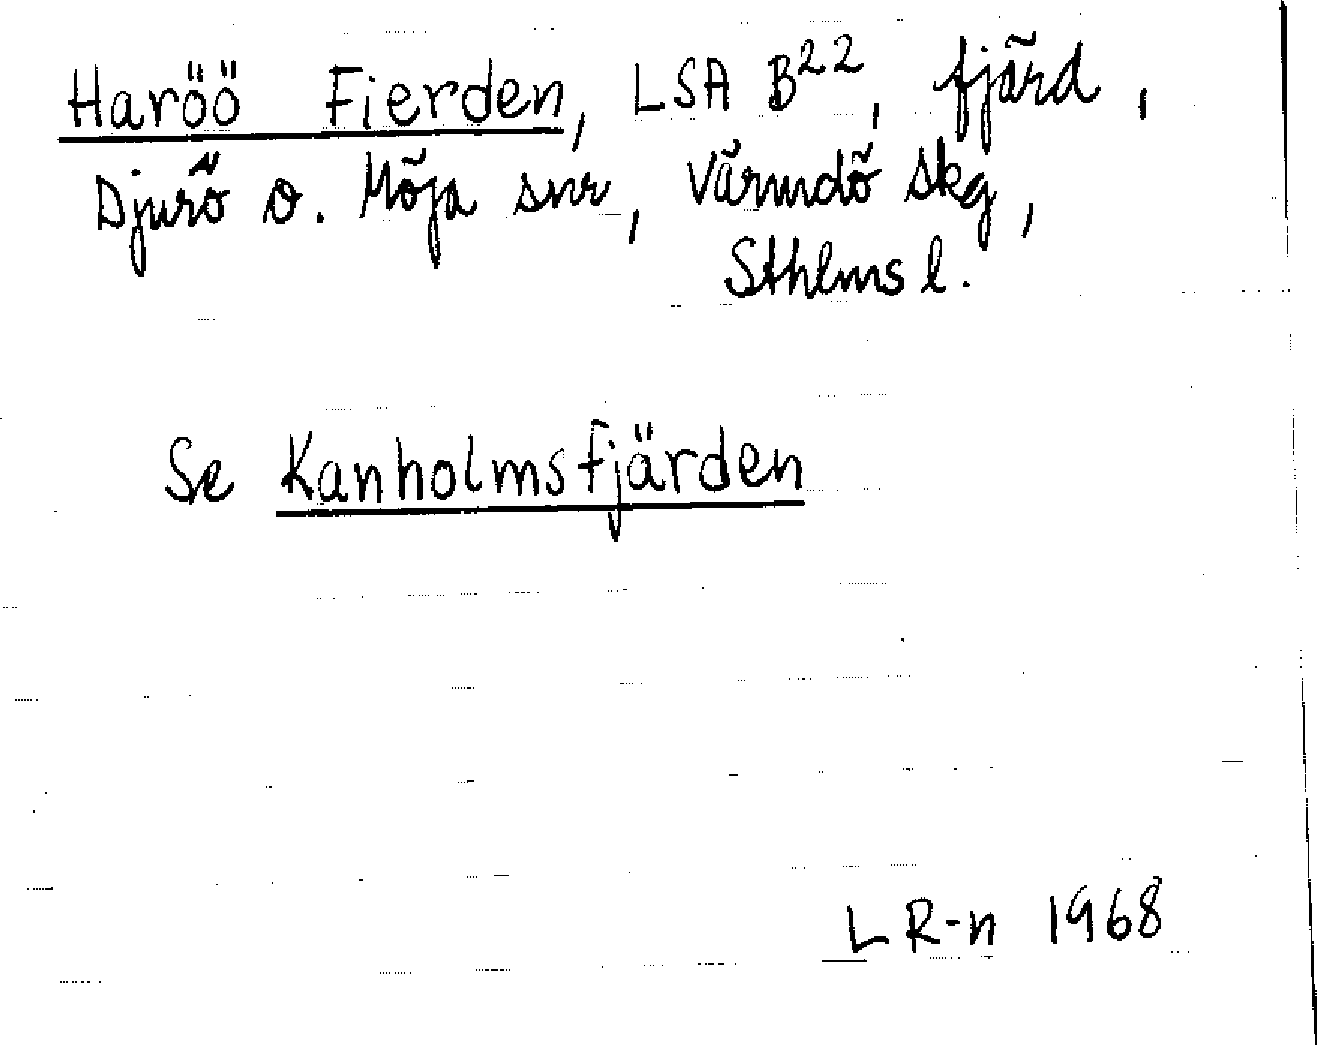 Haröö Fierden, LSA B²², fjärd,
Djurö o. Möja snr, Värmdö skg,
Sthlms l.
Se Kanholmsfjärden
L R-n 1968